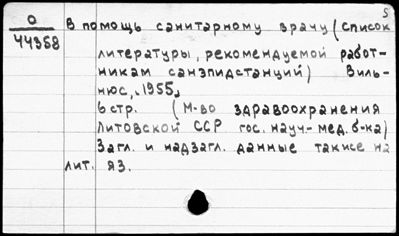 5
О
44358
В помощь санитарному врачу (Список
литературы, рекомендуемой работ-
никам санэпидстанций) Виль-
нюс, 1955,
6 стр. (М-во здравоохранения
Литовской ССР гос. науч.-мед. б-ка)
Загл. и надзагл. данные также на
лит. яз.